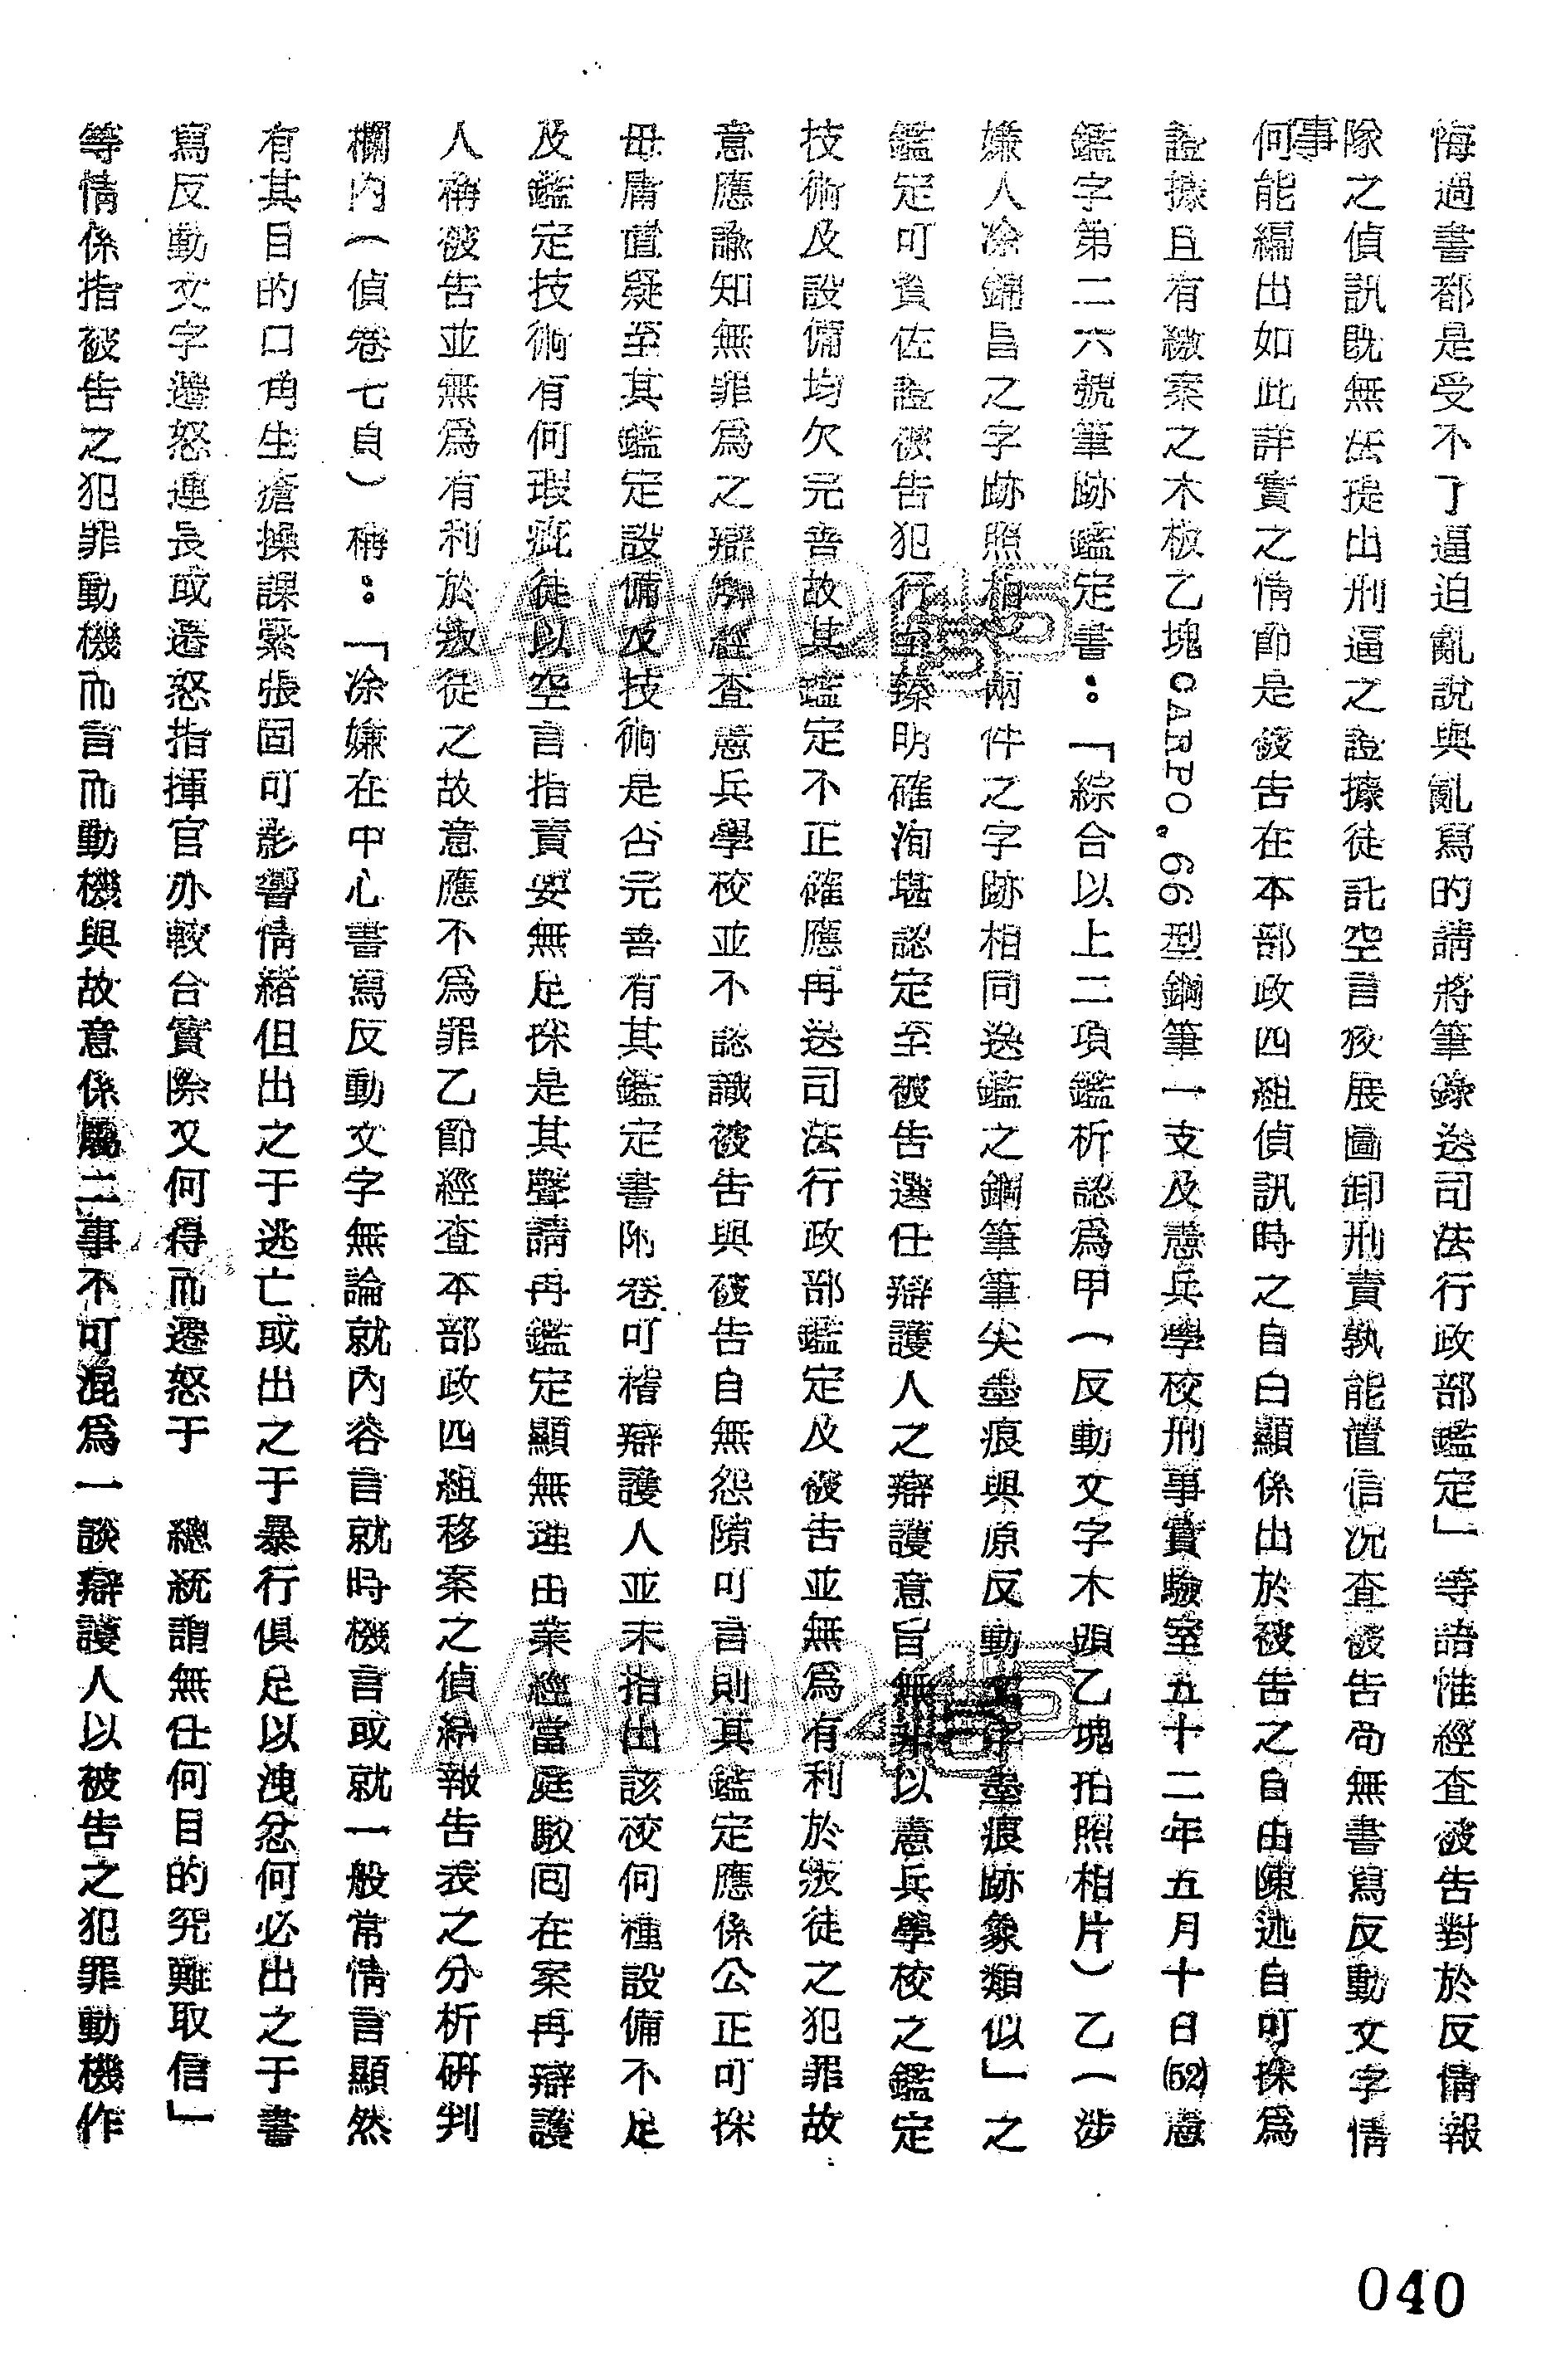 悔過書都是受不了逼迫亂說與亂寫的請將筆錄送司法行政部鑑定」等語惟經查被告對於反情報
隊之偵訊既無法提出刑逼之證據徒託空言狡展圖卸刑責孰能置信况查被告尚無書寫反動文字情
事
何能編出如此詳實之情節是被告在本部政四組偵訊時之自白顯係出於被告之自由陳述自可採為
證據且有繳案之木板乙塊CARPO.66型鋼筆一支及憲兵學校刑事實驗室五十二年五月十日(52)憲
鑑字第二六號筆跡鑑定書：「綜合以上二項鑑析認為甲（反動文字木頭乙塊拍照相片）乙（涉
嫌人涂錦昌之字跡照相）兩件之字跡相同送鑑之鋼筆筆尖墨痕與原反動文字墨痕跡象類似」之
鑑定可資佐證被告犯行至臻明確洵堪認定至被告選任辯護人之辯護意旨無非以憲兵學校之鑑定
技術及設備均欠完善故其鑑定不正確應再送司法行政部鑑定及被告並無為有利於叛徒之犯罪故
意應諭知無罪為之辯解經查憲兵學校並不認識被告與被告自無怨隙可言則其鑑定應係公正可採
毋庸置疑至其鑑定設備及技術是否完善有其鑑定書附卷可稽辯護人並未指出該校何種設備不足
及鑑定技術有何瑕疵徒以空言指責要無足採是其聲請再鑑定顯無理由業經當庭駁回在案再辯護
人稱被告並無為有利於叛徒之故意應不為罪乙節經查本部政四組移案之偵訊報告表之分析研判
欄內（偵卷七頁）稱：「涂嫌在中心書寫反動文字無論就內容言就時機言或就一般常情言顯然
有其目的口角生瘡操課緊張固可影響情緒但出之于逃亡或出之于暴行俱足以洩忿何必出之于書
寫反動文字遷怒連長或遷怒指揮官亦較合實際又何得而遷怒于　總統謂無任何目的究難取信」
等情係指被告之犯罪動機而言而動機與故意係屬二事不可混為一談辯護人以被告之犯罪動機作
040
A600245
A600245